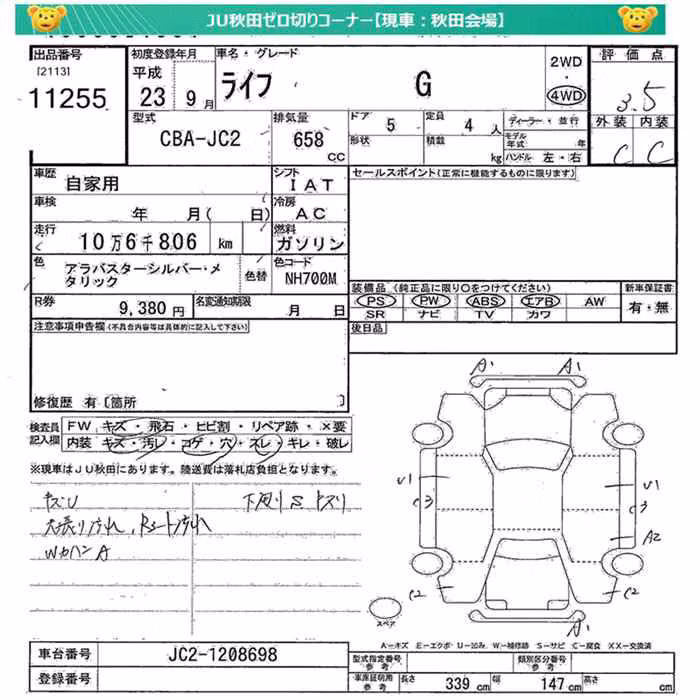 JU秋田ゼロ切りコーナー【現車：秋田会場】
出品番号 初度登録年月 車名・グレード 評価点
[2113] 平成 2WD・4WD
11255 23年9月 ライフ G 3.5
型式 排気量 ドア 5 定員 4人 ディーラー・並行 外装 内装
CBA-JC2 658CC 形状 積載 kg モデル年式 年 C C
ハンドル 左・右
車歴 自家用 シフト IAT セールスポイント(正常に機能するものに限ります)
車検 年 月( 日) 冷房 AC
走行 10万6千806 km 燃料 ガソリン
色 アラバスターシルバー・メタリック 色替 色コード NH700M
装備品 (純正品に限り○をつけてください) 新車保証書
PS PW ABS エアB AW 有・無
SR ナビ TV カワ
R券 9,380円 名変通知期限 月 日
注意事項申告欄(不具合内容等は具体的に記入して下さい) 後日品
修復歴 有〔箇所 〕
検査員記入欄 FW キズ・飛石・ヒビ割・リペア跡・×要
内装 キズ・汚レ・コゲ・穴・スレ・キレ・破レ
※現車はJU秋田にあります。陸送費は落札店負担となります。
A1 A1
キズU 下廻りSキズリ
天張り汚れ、Rシート汚れ
WカハンA
U1 U1
C3 C3
A2
C2 C2
A1
スペア
A=キズ E=エクボ U=凹み W=補修跡 S=サビ C=腐食 XX=交換済
車台番号 JC2-1208698 型式指定番号 参考 類別区分番号 参考
登録番号 車庫証明用参考 長さ 339cm 幅 147cm 高さ cm